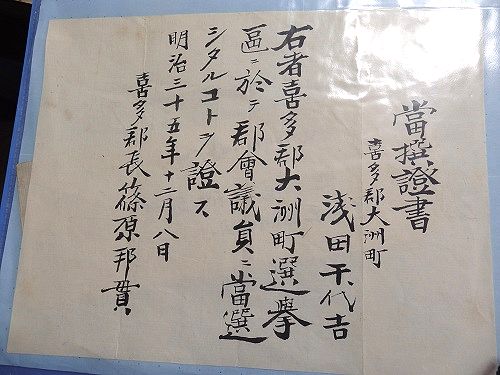 當撰證書
喜多郡大洲町
淺田千代吉
右者喜多郡大洲町選擧
區ニ於テ郡會議員ニ當選
シタルコトヲ證ス
明治三十五年十二月八日
喜多郡長篠原邦貫